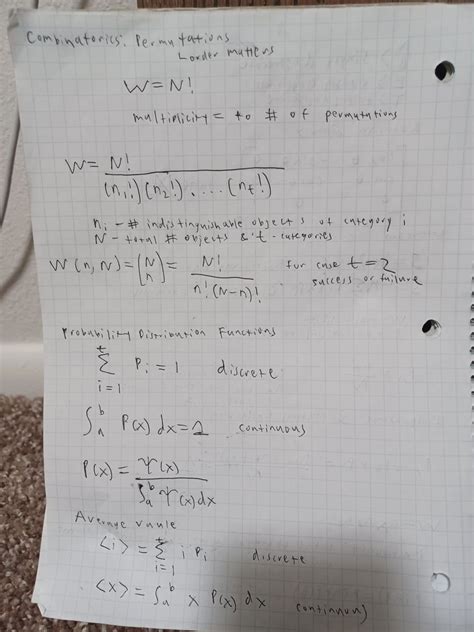 Combinatorics: Permutations
↳ order matters
W = N!
multiplicity = to # of permutations
W = N! / (n₁!)(n₂!). ....(nₜ!)
nᵢ - # indistinguishable objects of category i
N - total # objects & t - categories
W(n, N) = (N n) = N! / n!(N-n)! for case t=2
success or failure
Probability Distribution Functions
∑ᵗᵢ₌₁ Pᵢ = 1 discrete
∫ₐᵇ P(x) dx = 1 continuous
P(x) = Ψ(x) / ∫ₐᵇ Ψ(x) dx
Average vaule
<i> = ∑ᵗᵢ₌₁ i Pᵢ discrete
<x> = ∫ₐᵇ x P(x) dx continuous